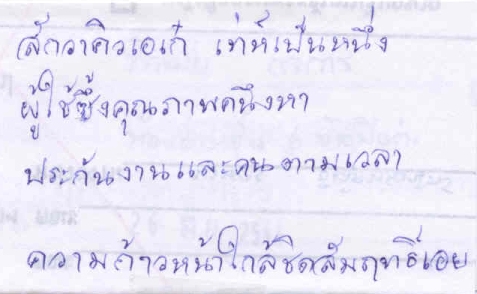 สักวาคิวเอเก๋ เท่ห์เป็นหนึ่ง
ผู้ใช้ซึ้งคุณภาพคนึงหา
ประกันงานและคนตามเวลา
ความก้าวหน้าใกล้ชิดสัมฤทธิ์เอย